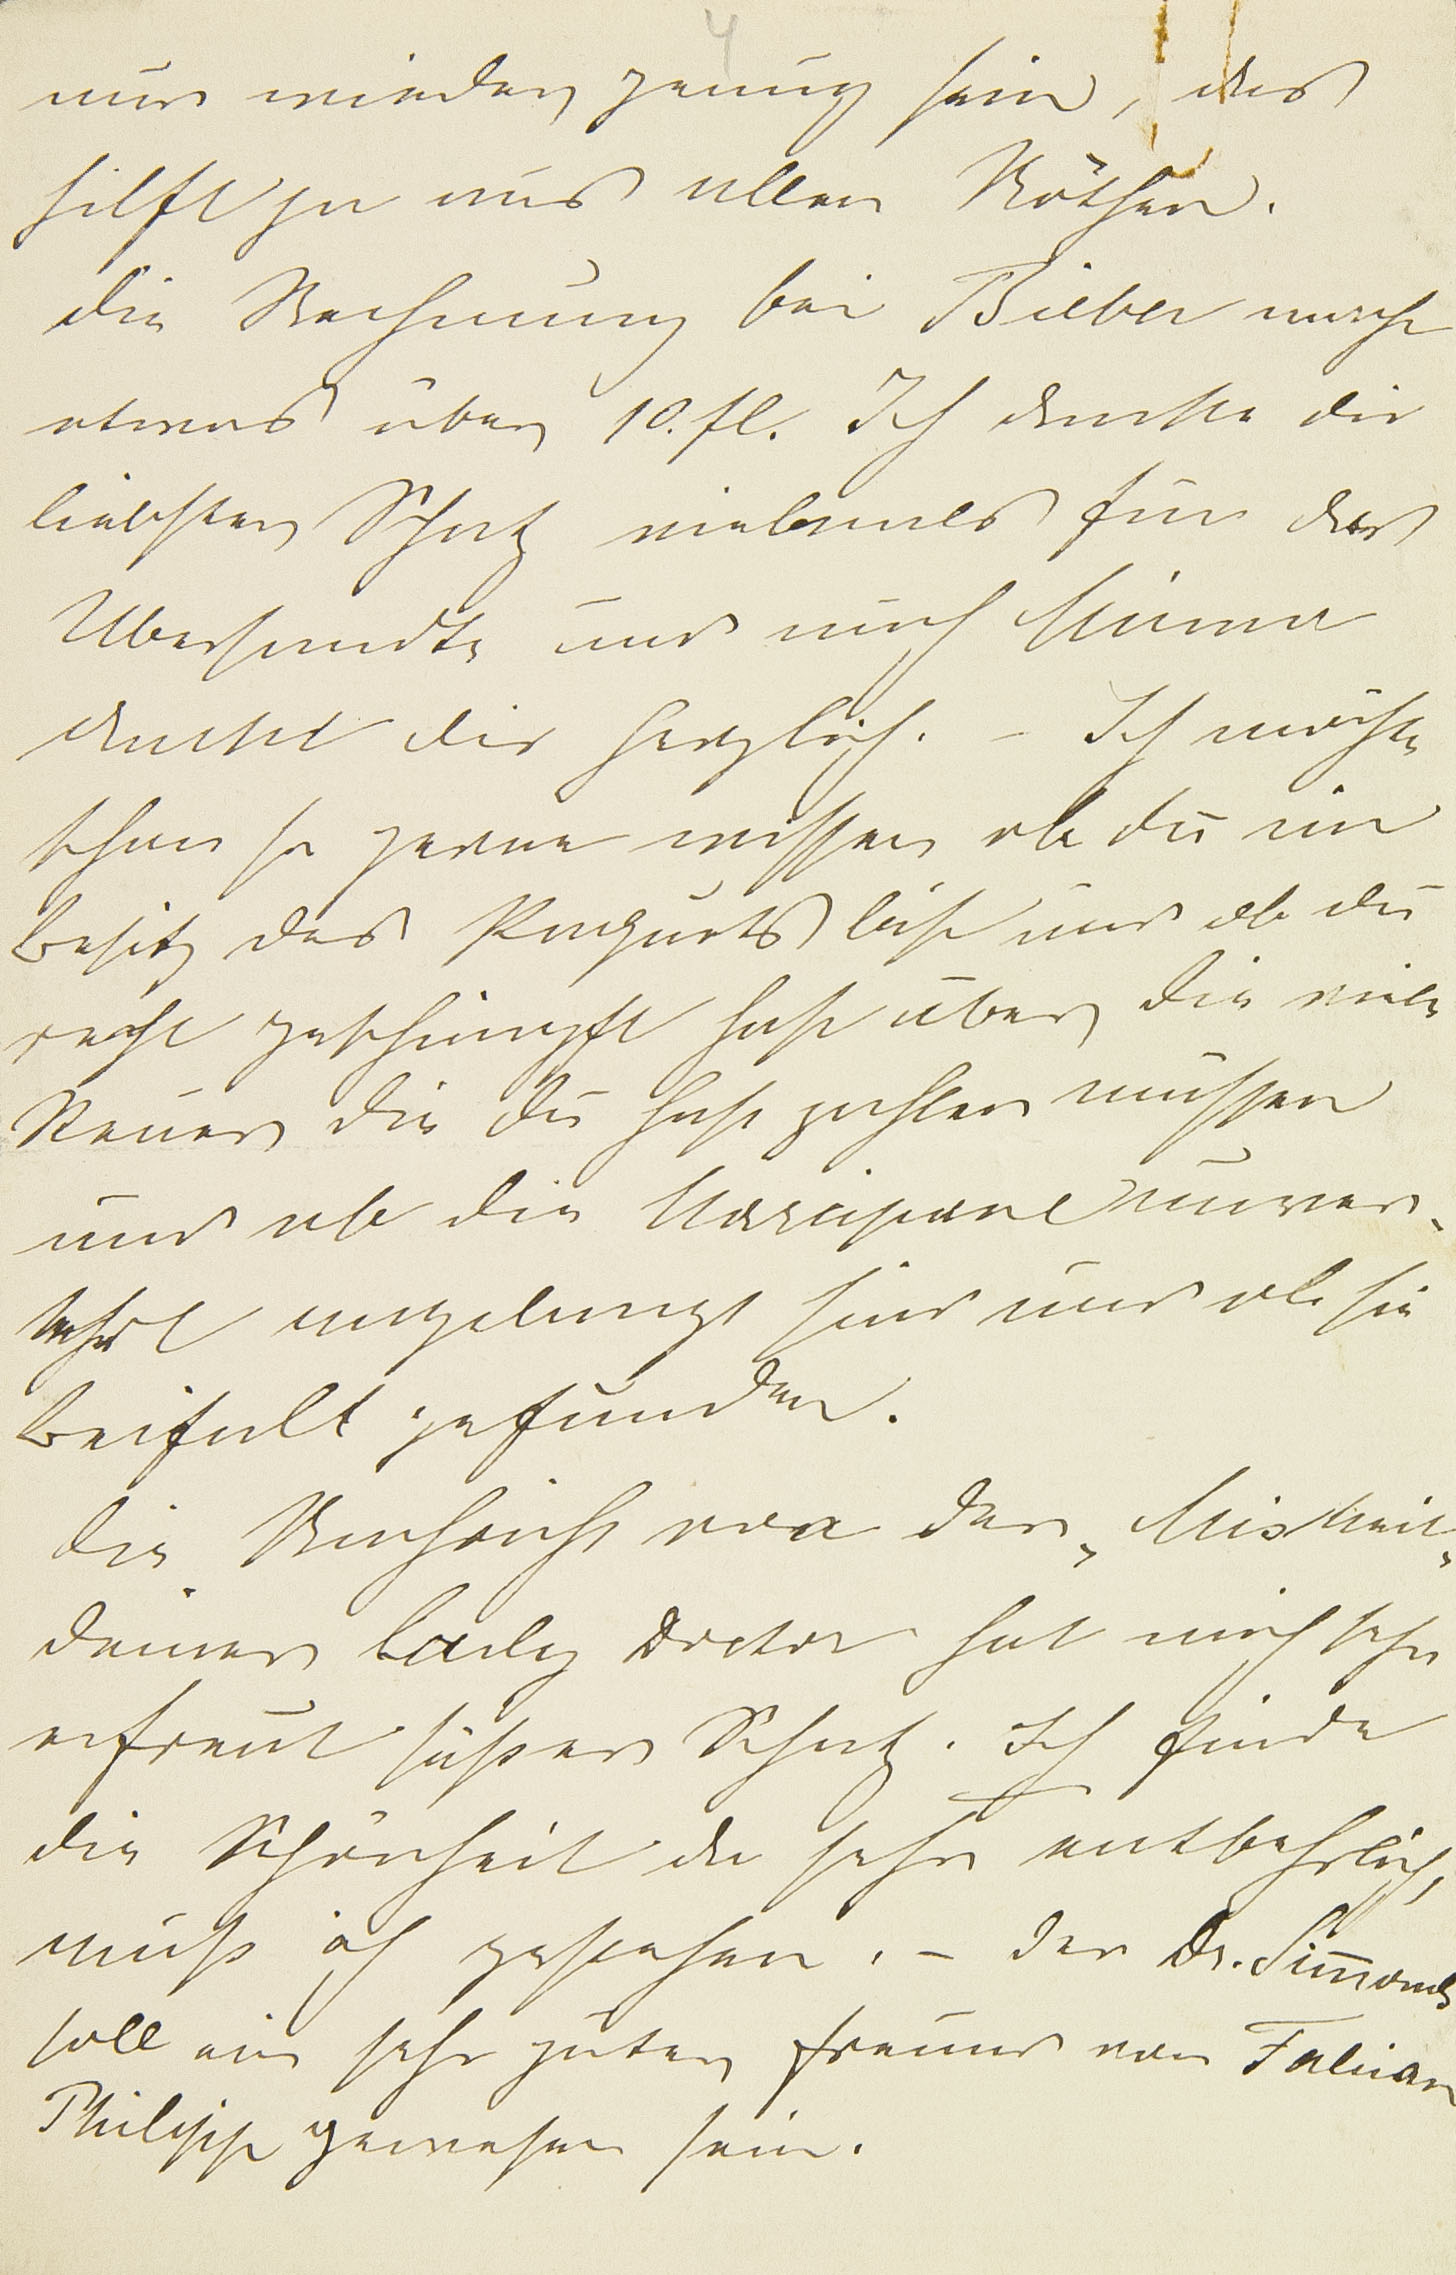 4
nur wieder genug sein, das
hilft ja aus allen Nöthen.
die Rechnung bei Bieber macht
etwas über 10. fl. Ich danke dir
liebster Schatz vielmals für das
Übersandte und auch Minna
dankt dir herzlich. – Ich möchte
schon so gerne wissen ob du im
Besitz des Packets bist und ob du
recht geschimpft hast über die viele
Steuer die du hast zahlen müssen
und ob die Marzipane unver-
sehrt angelangt sind und ob sie
Beifall gefunden.
die Nachricht von der
deiner Lady Doctor hat mich sehr
erfreut süßer Schatz. Ich finde
die Schönheit da sehr entbehrlich,
muß ich gestehen. – der Dr. Simmonds
soll ein sehr guter Freund von Fabian
Philipp gewesen sein.